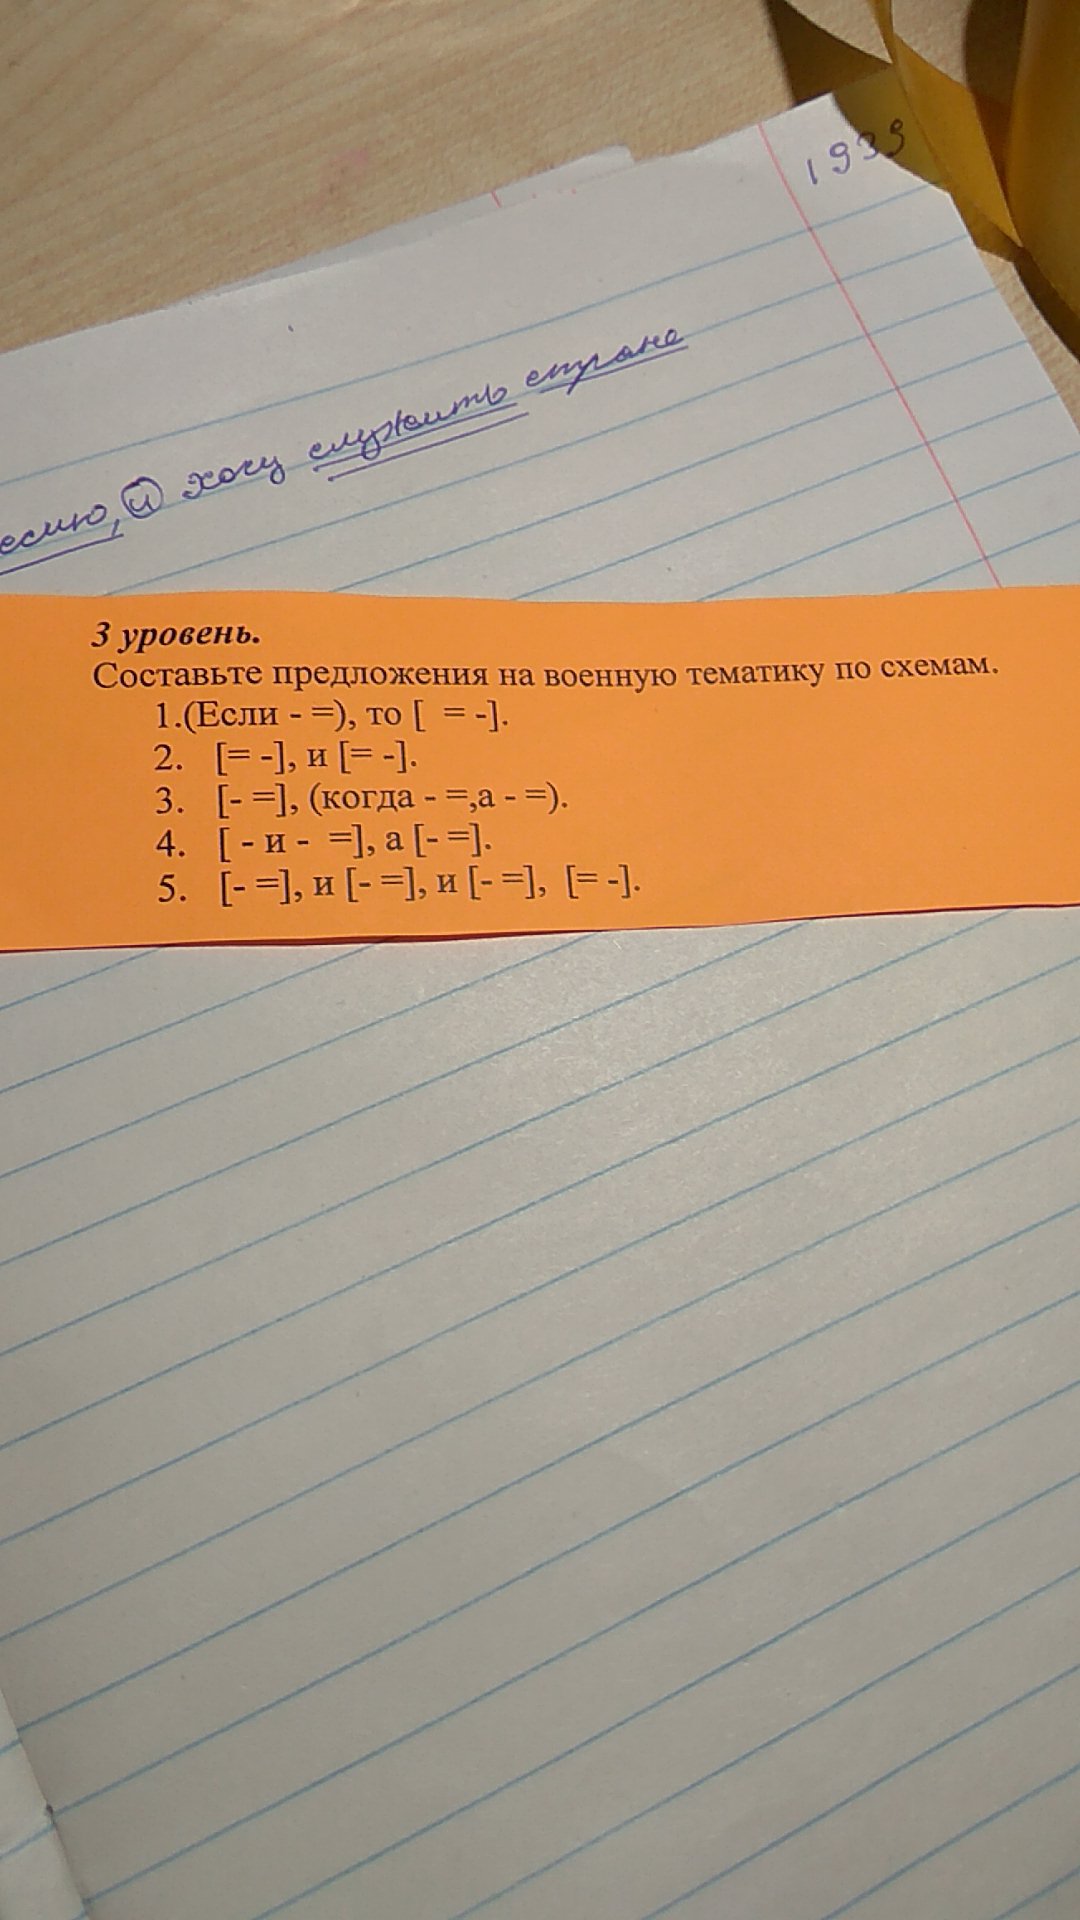 1939
, и хочу служить стране
3 уровень.
Составьте предложения на военную тематику по схемам.
1.(Если - =), то [ = -].
2. [= -], и [= -].
3. [- =], (когда - =,а - =).
4. [ - и - =], а [- =].
5. [- =], и [- =], и [- =], [= -].